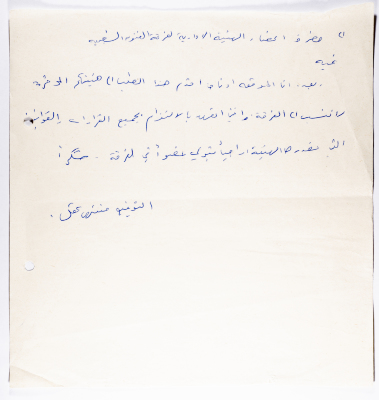 الى حضرة اعضاء الهيئة الادارية لفرقة الفنون الشعبية
تحية
وبعد. انا الموقعه ادناه اقدم هذا الطلب الى هيئتكم الموقرة
للانتساب الى الفرقة وانني اتعهد بالالتزام بجميع القرارات والقوانين
التي تصدرها الهيئة راجية قبولي عضوا في الفرقة. وشكراً
التوقيع